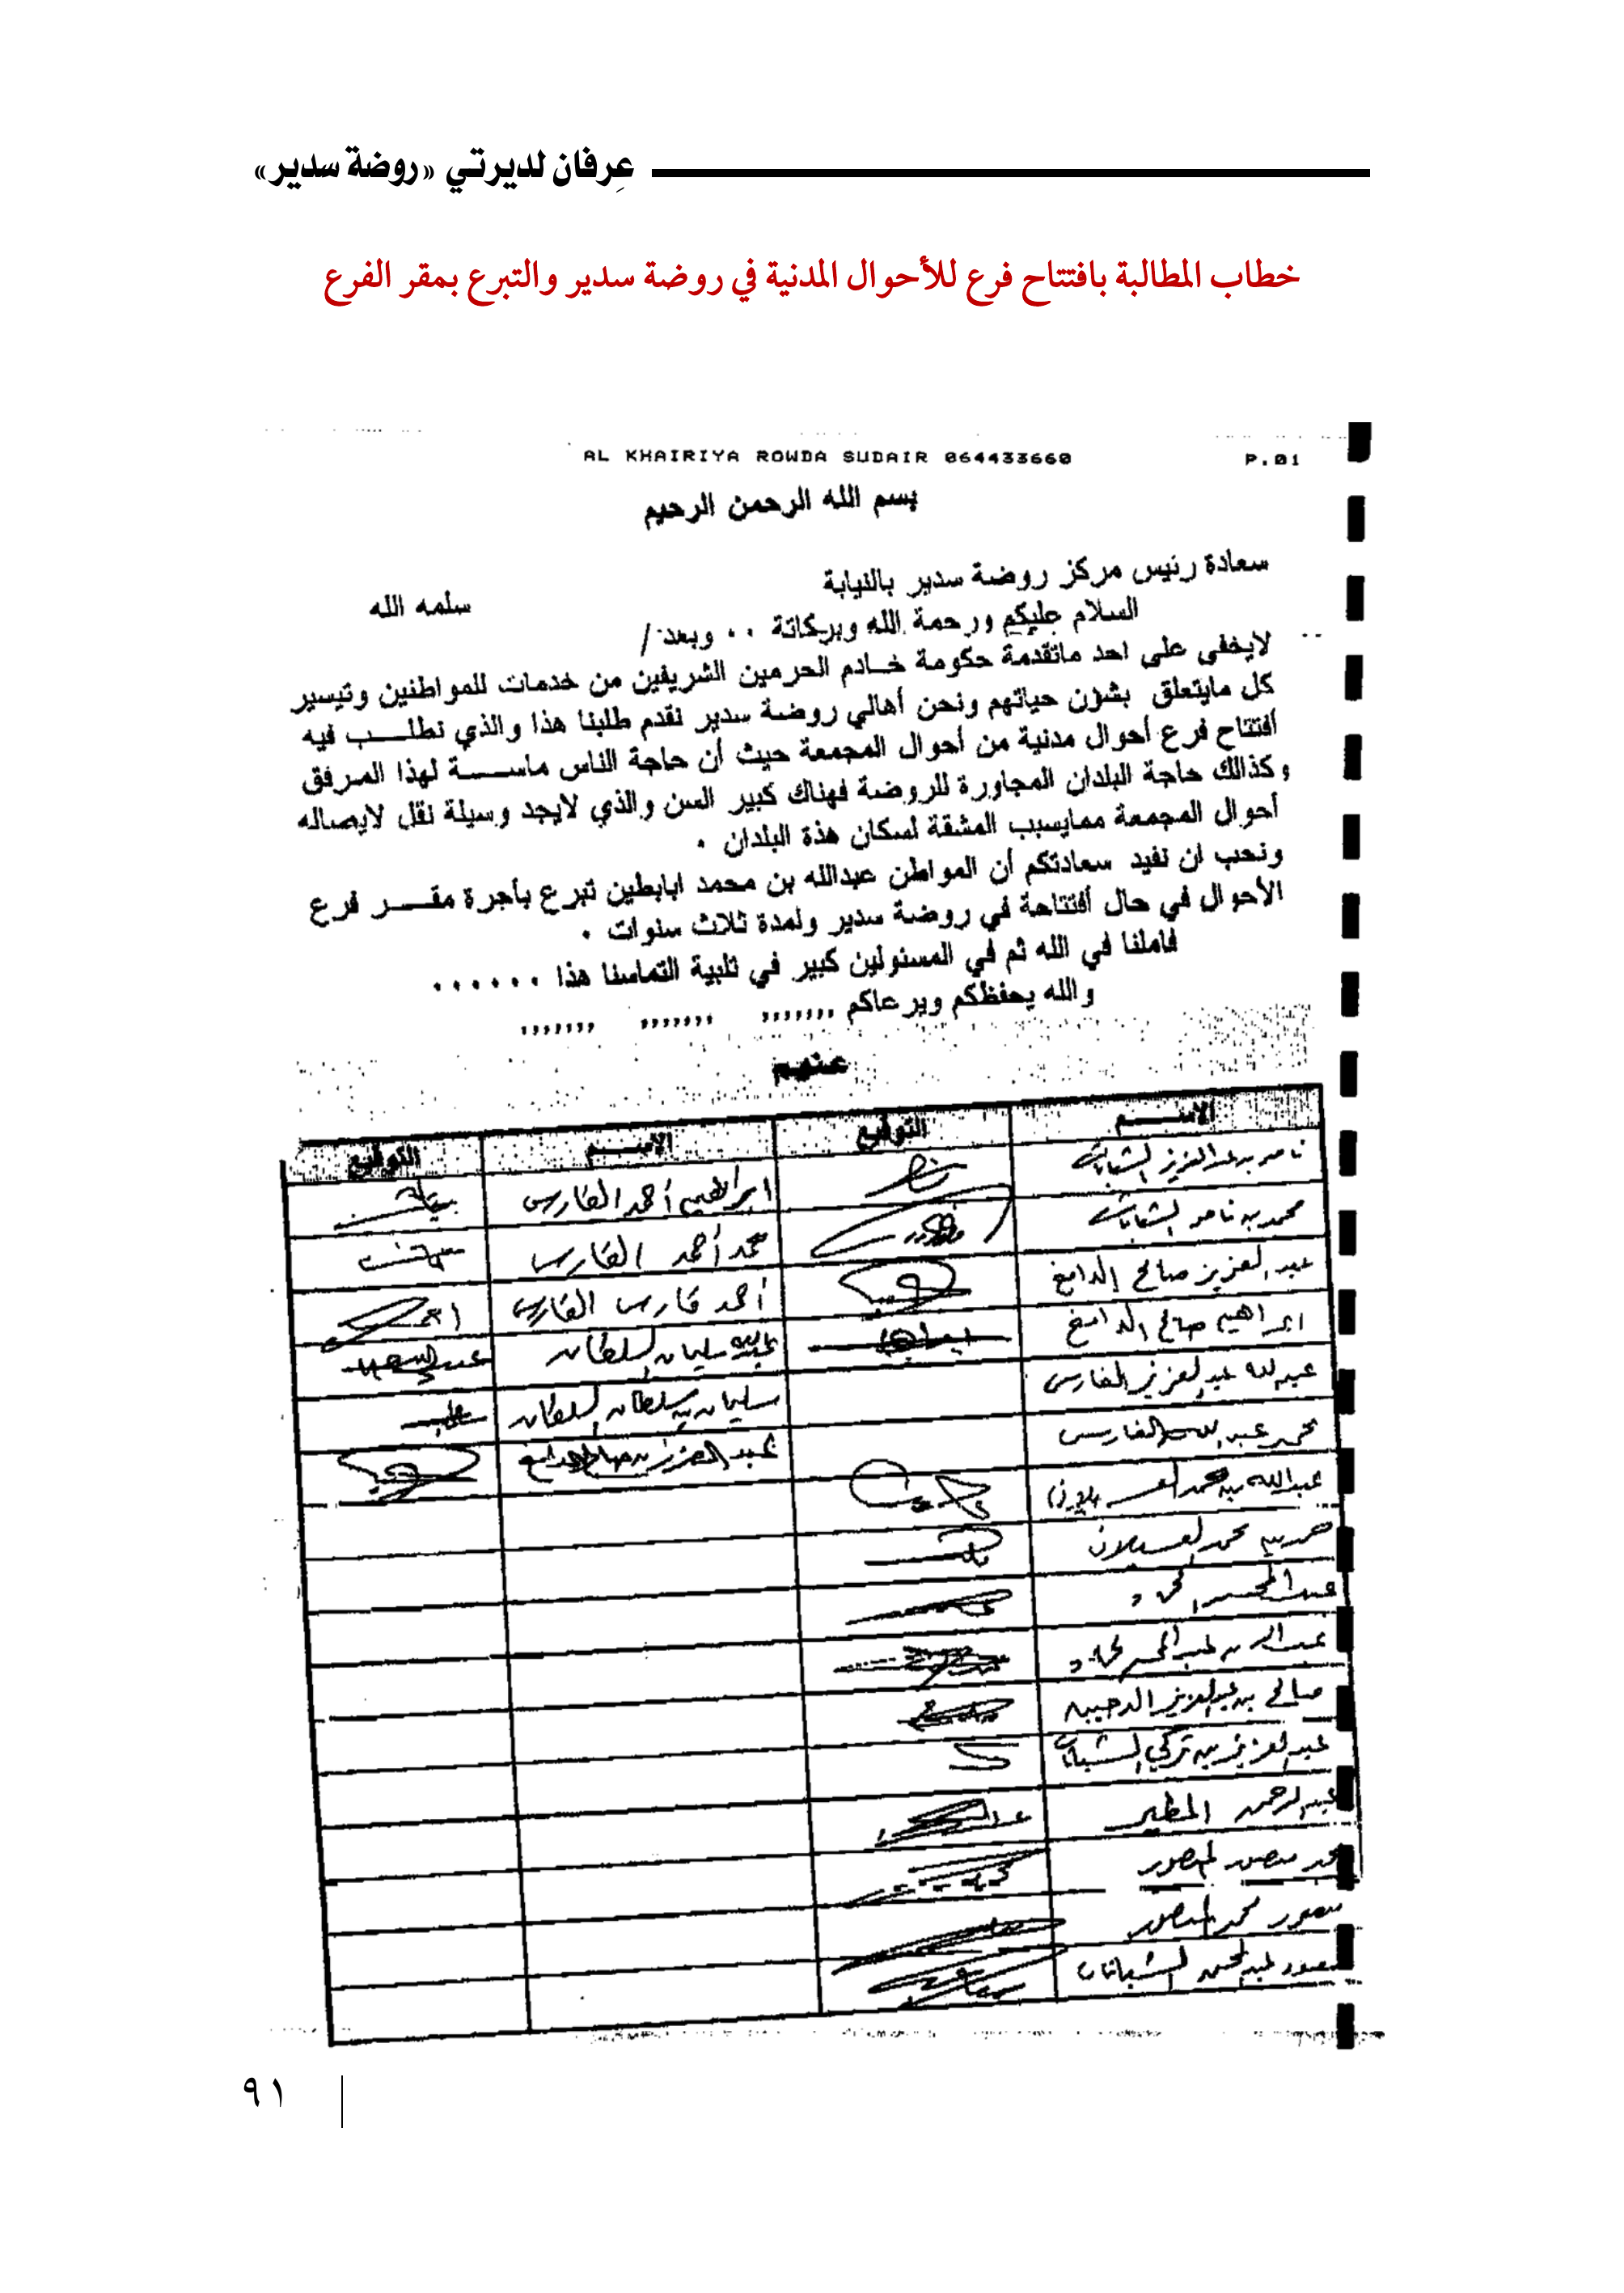 عِرفان لديرتي «روضة سدير»
خطاب المطالبة بافتتاح فرع للأحوال المدنية في روضة سدير والتبرع بمقر الفرع
AL KHAIRIYA ROWDA SUDAIR 064433660 P.01
بسم الله الرحمن الرحيم
سعادة رئيس مركز روضة سدير بالنيابة
سلمه الله
السلام عليكم ورحمة الله وبركاتة ٠٠ وبعد /
لايخفى على احد ماتقدمة حكومة خادم الحرمين الشريفين من خدمات للمواطنين وتيسير
كل مايتعلق بشؤن حياتهم ونحن أهالي روضة سدير نقدم طلبنا هذا والذي نطلب فيه
أفتتاح فرع أحوال مدنية من أحوال المجمعة حيث أن حاجة الناس ماسة لهذا المرفق
وكذالك حاجة البلدان المجاورة للروضة فهناك كبير السن والذي لايجد وسيلة نقل لايصاله
أحوال المجمعة ممايسبب المشقة لسكان هذة البلدان ٠
ونحب ان نفيد سعادتكم أن المواطن عبدالله بن محمد ابابطين تبرع بأجرة مقر فرع
الأحوال في حال أفتتاحة في روضة سدير ولمدة ثلاث سنوات ٠
فاملنا في الله ثم في المسئولين كبير في تلبية التماسنا هذا ٠٠٠٠٠٠
والله يحفظكم ويرعاكم ,,,,,,, ,,,,,,, ,,,,,,,
عنهم
الاسم التوقيع الاسم التوقيع
ناصر بن عبدالعزيز الشبانات ابراهيم أحمد الفارس
محمد بن ناصر الشبانات محمد أحمد الفارس
عبدالعزيز صالح الدامغ أحمد فارس الفارس
ابراهيم صالح الدامغ عبدالله سليمان السلطان
عبدالله عبدالعزيز الفارس سليمان بن سلطان السلطان
محمد عبدالله الفارس عبدالعزيز بن صالح الدامغ
عبدالله بن محمد
محمد
عبدالمحسن
صالح بن عبدالعزيز
عبدالعزيز بن تركي الشبانات
عبدالرحمن المطير
محمد منصور المنصور
منصور محمد المنصور
منصور عبدالمحسن الشبانات
٩١